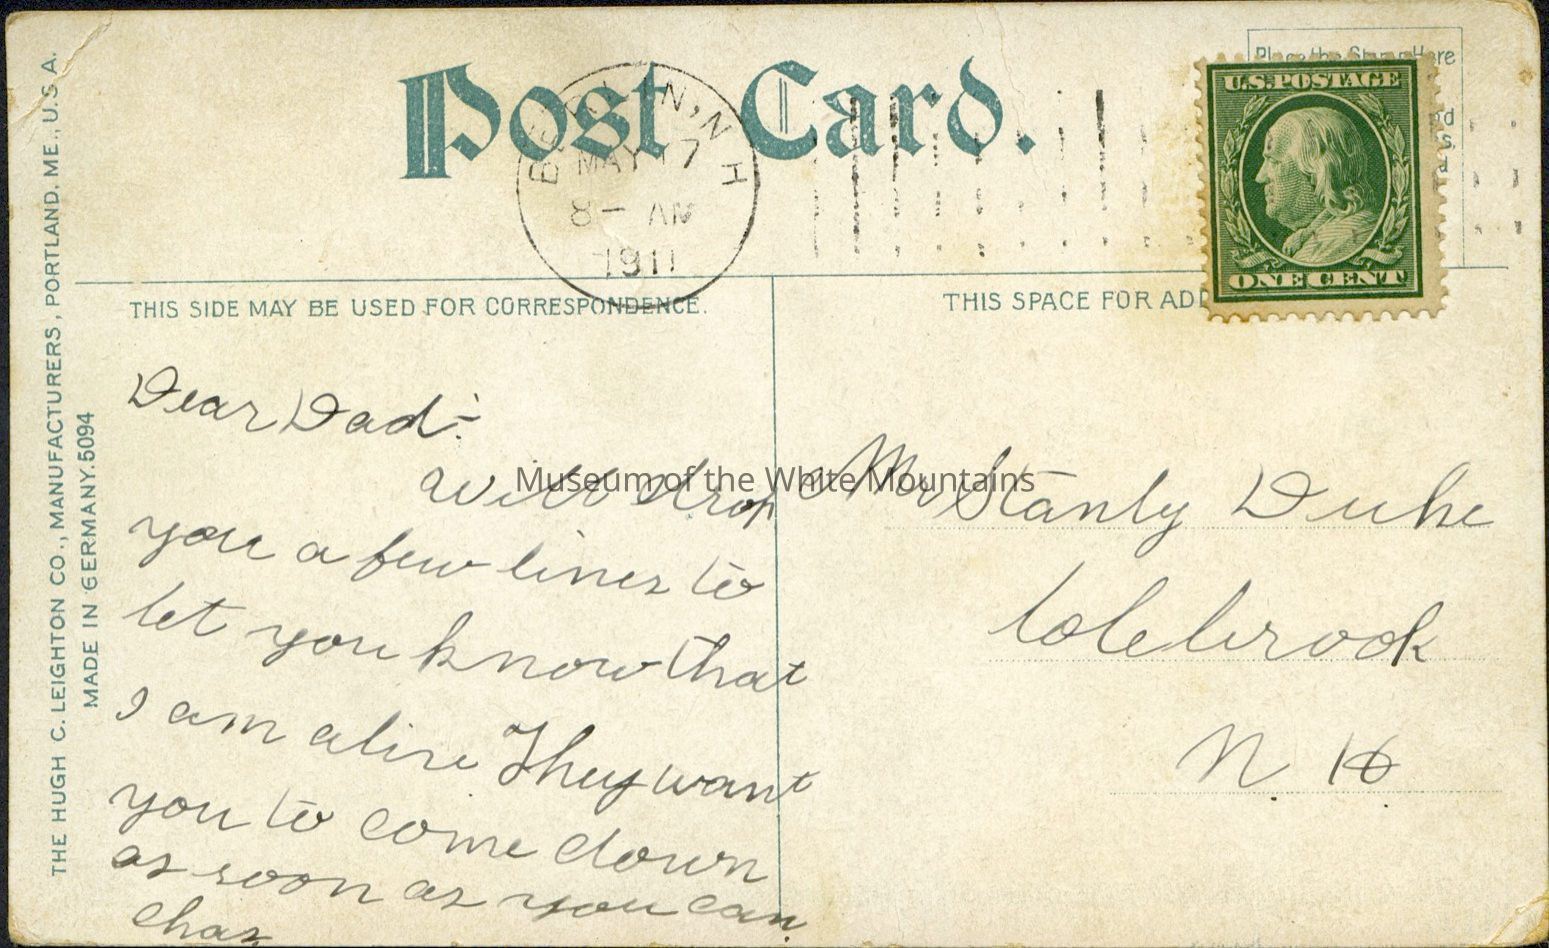 Post Card.
Place the Stamp Here
BERLIN, N H
MAY 17
8 – AM
1911
U.S. POSTAGE
ONE CENT
THIS SIDE MAY BE USED FOR CORRESPONDENCE.
THIS SPACE FOR ADD
THE HUGH C. LEIGHTON CO., MANUFACTURERS, PORTLAND, ME., U.S.A.
MADE IN GERMANY. 5094
Dear Dad:-
will drop
you a few lines to
let you know that
I am alive They want
you to come down
as soon as you can.
Chas.
Mr Stanly Duke
Colebrook
N. H.
Museum of the White Mountains